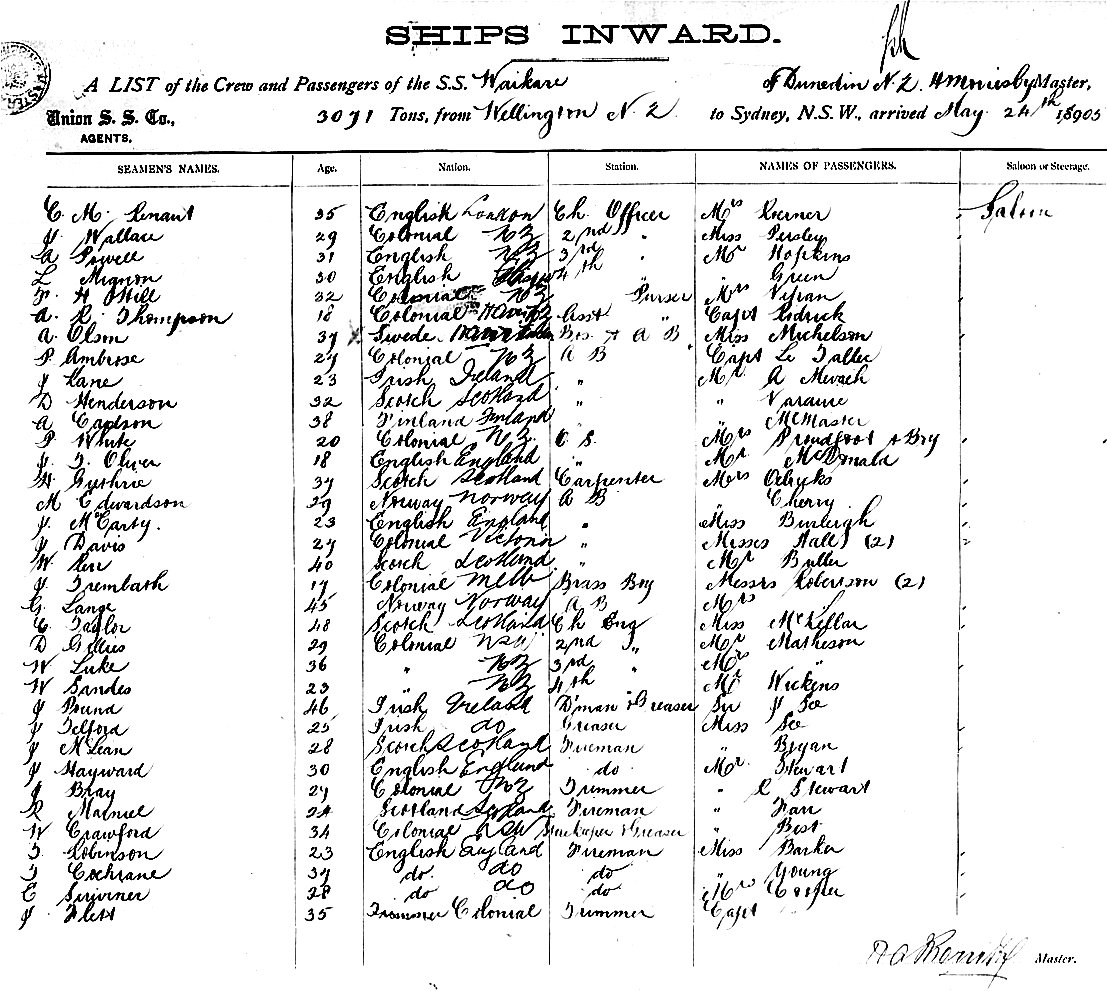 SHIPS INWARD.
A LIST of the Crew and Passengers of the S.S. Waikare of Dunedin N.Z. Master,
Union S. S. Co., 3071 Tons, from Wellington N.Z. to Sydney, N.S.W., arrived May 24th 1905
AGENTS.
SEAMEN'S NAMES. Age. Nation. Station. NAMES OF PASSENGERS. Saloon or Steerage.
C. M. 35 English London Ch. Officer Mrs Saloon
J. Wallace 29 Colonial NZ 2nd " Miss Persley
A Powell 31 English NZ 3rd " Mr Hopkins
L Mignon 30 English 4th " " Green
32 Colonial NZ Purser Mrs
A. R. Thompson 18 Colonial Asst " Capt
A. Olson 37 Swede Bos. & A B Miss Michelson
P. Ambrose 27 Colonial NZ A B Capt Le
J Lane 23 Irish Ireland " Mr A
D Henderson 32 Scotch Scotland " "
A Carlson 38 Finland Finland " McMaster
P. White 20 Colonial N.Z. O S. Mrs Proudfoot & Boy
J. T. Oliver 18 English England " Mr McDonald
H Guthrie 37 Scotch Scotland Carpenter Mrs
M Edwardson 29 Norway Norway A B " Cherry
J. McCarty. 23 English England " Miss Burleigh
J Davis 27 Colonial Victoria " Misses Hall (2)
W Kerr 40 Scotch Scotland " Mr Buller
J Trembath 17 Colonial Melb Brass Boy Messrs Robertson (2)
G. Lange 45 Norway Norway A B Mrs "
C Taylor 48 Scotch Scotland Ch Eng Miss McKellar
D Gillies 29 Colonial NSW 2nd " Mr Matheson
W Luke 36 " NZ 3rd " Mrs "
W Sandes 23 " NZ 4th " Mr Wickens
J Pound 46 Irish Ireland D'man & Greaser Sir J See
J Telford 25 Irish do Greaser Miss See
J McLean 28 Scotch Scotland Fireman " Bryan
J Hayward 30 English England do Mr Stewart
J Bray 27 Colonial NZ Trimmer " C Stewart
R 24 Scotland Scotland Fireman " Farr
W Crawford 34 Colonial NSW Storekeeper & Greaser " Best
T Robinson 23 English England Fireman Miss Barker
T Cochrane 37 do do do " Young
E Scriviner 28 do do do Mrs Cooper
J Flett 35 Trimmer Colonial Trimmer Capt "
Master.